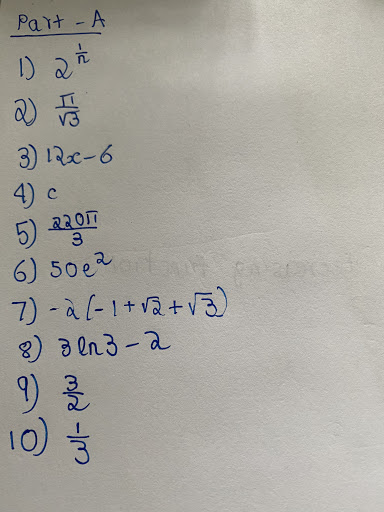 Part - A
1) 2^(1/n)
2) π/√3
3) 12x-6
4) c
5) 220π/3
6) 50e²
7) -2(-1+√2+√3)
8) 3ln3-2
9) 3/2
10) 1/3